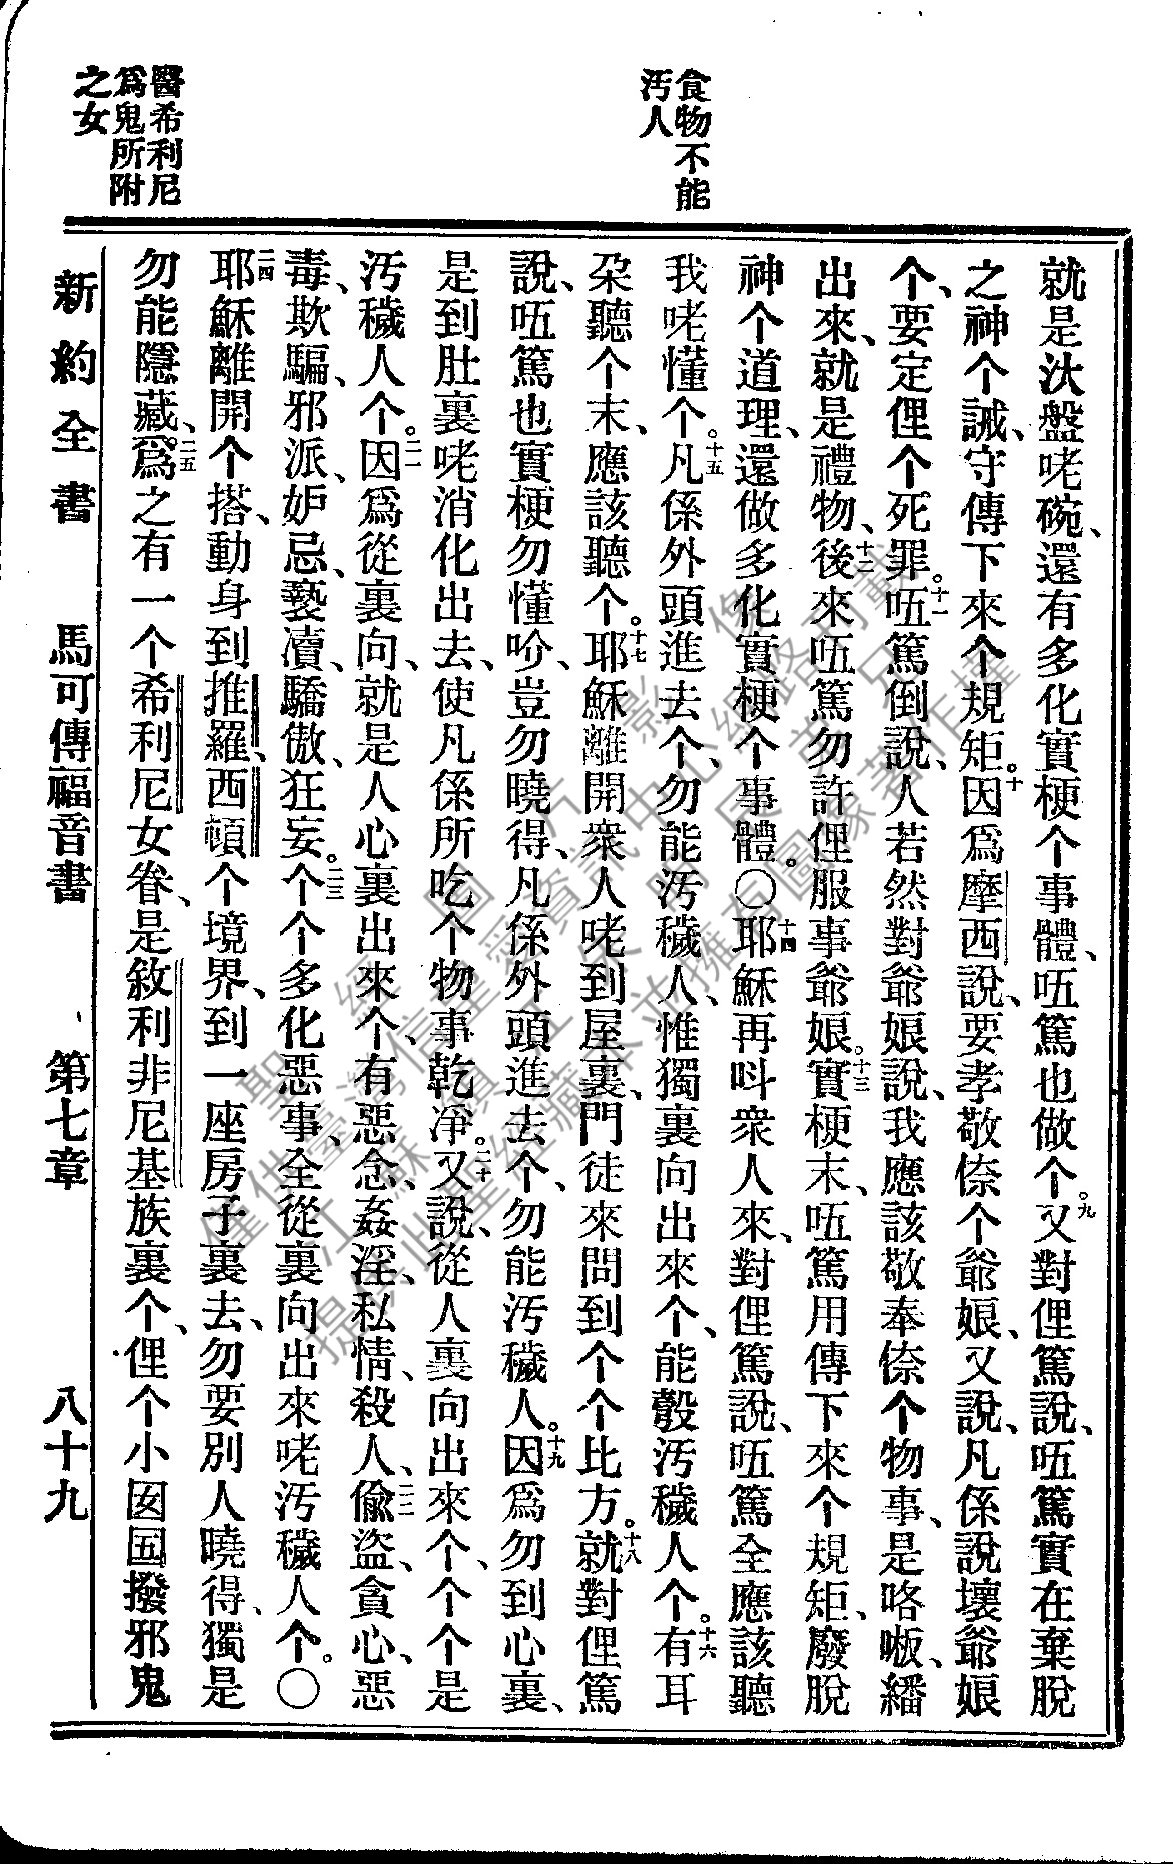 食物不能
汚人
醫希利尼
爲鬼所附
之女
就是汏盤咾碗、還有多化實梗个事體、㑚篤也做个。九又對俚篤說、㑚篤實在棄脫
之神个誡、守傳下來个規矩。十因爲摩西說、要孝敬倷个爺娘、又說、凡係說壞爺娘
个、要定俚个死罪。十一㑚篤倒說、人若然對爺娘說、我應該敬奉倷个物事、是咯嘁、繙
出來、就是禮物、十二後來㑚篤勿許俚服事爺娘。十三實梗末、㑚篤用傳下來个規矩、廢脫
神个道理、還做多化實梗个事體。〇十四耶穌再呌衆人來、對俚篤說、㑚篤全應該聽
我咾懂个。十五凡係外頭進去个、勿能汚穢人、惟獨裏向出來个、能彀汚穢人个。十六有耳
朶聽个末、應該聽个。十七耶穌離開衆人咾到屋裏、門徒來問到个个比方。十八就對俚篤
說、㑚篤也實梗勿懂吤、豈勿曉得、凡係外頭進去个、勿能汚穢人。十九因爲勿到心裏、
是到肚裏咾消化出去、使凡係所吃个物事乾凈。二十又說、從人裏向出來个、个个是
汚穢人个。二一因爲從裏向、就是人心裏出來个、有惡念、姦淫、私情、殺人、二二偸盜、貪心、惡
毒、欺騙、邪派、妒忌、褻瀆、驕傲、狂妄。二三个个多化惡事、全從裏向出來咾汚穢人个。〇
二四耶穌離開个搭、動身到推羅、西頓个境界、到一座房子裏去、勿要別人曉得、獨是
勿能隱藏。二五爲之有一个希利尼女眷、是敘利非尼基族裏个、俚个小囡囯撥邪鬼
新約全書 馬可傳福音書 第七章 八十九